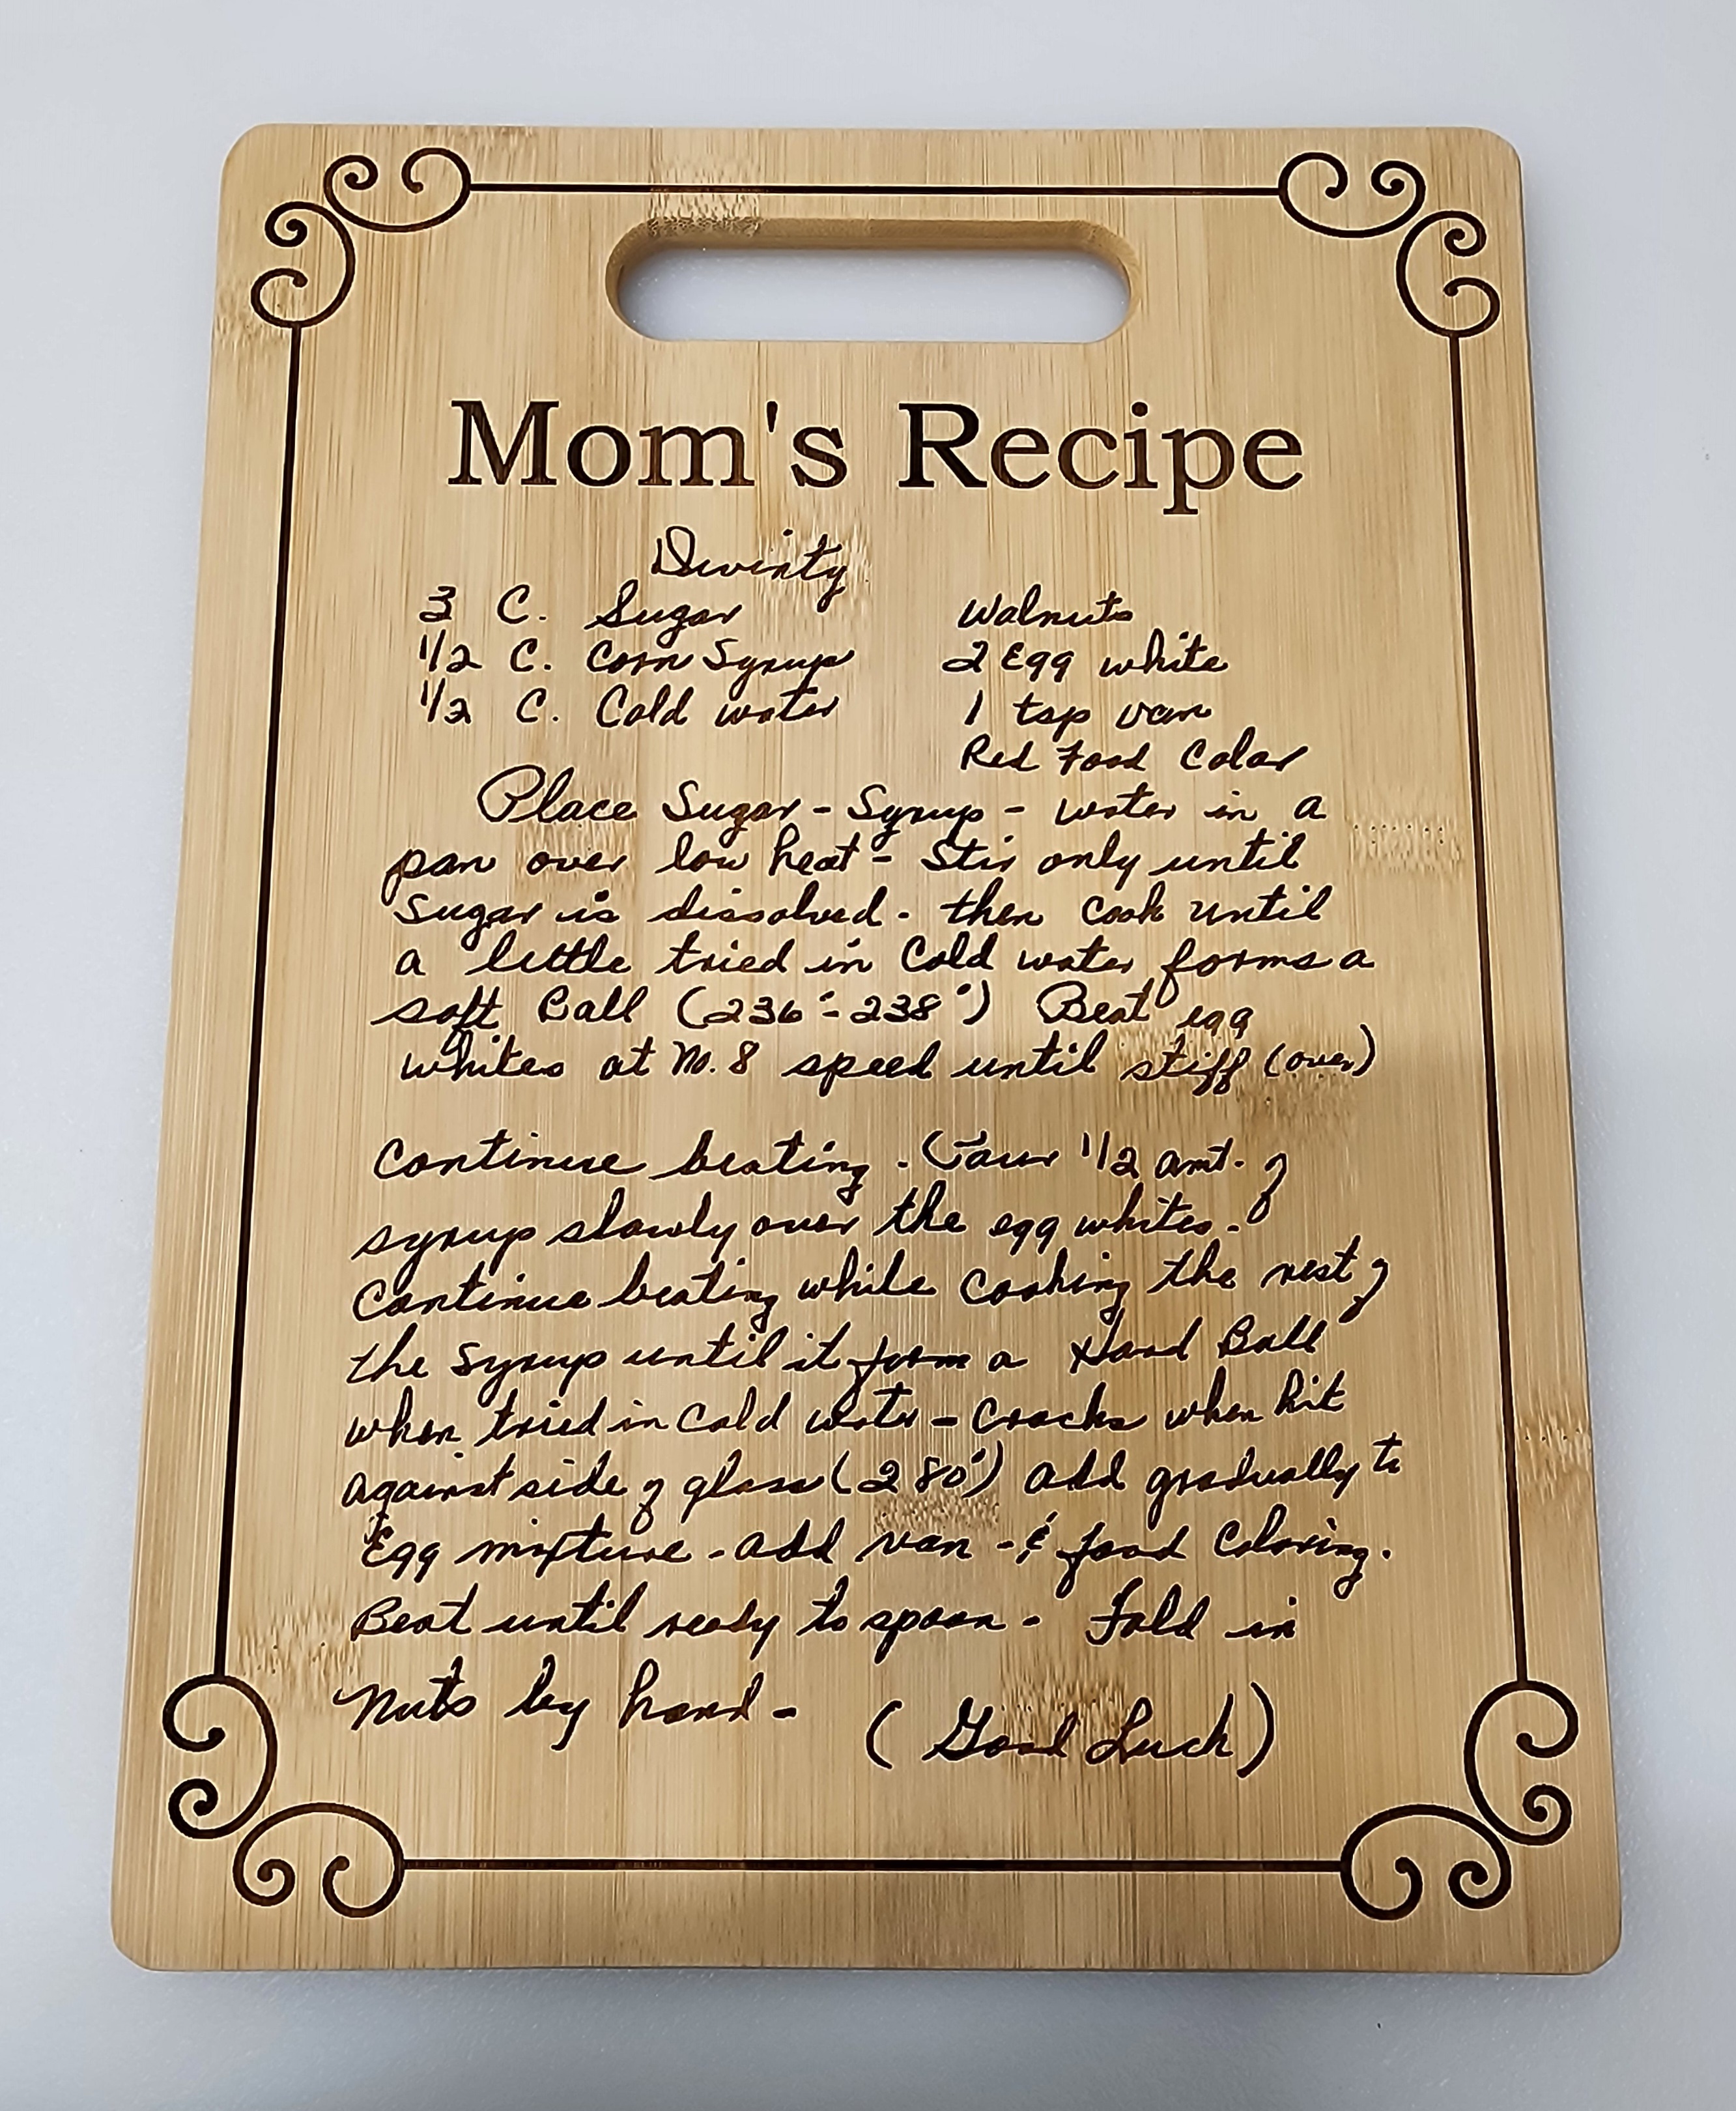 Mom's Recipe
Divinty
3 C. Sugar
1/2 C. Corn Syrup
1/2 C. Cold water
Walnuts
2 Egg white
1 tsp van
Red Food Color
Place Sugar - Syrup - water in a
pan over low heat - Stir only until
Sugar is dissolved - then Cook until
a little tried in Cold water forms a
soft Ball (236° - 238°) Beat egg
whites at M. 8 speed until stiff (over)
Continue beating. Pour 1/2 amt. of
syrup slowly over the egg whites -
Continue beating while Cooking the rest of
the Syrup until it form a Hard Ball
when tried in Cold water - Cracks when hit
against side of glass (280°) add gradually to
Egg mixture - add van - & food Coloring.
Beat until ready to spoon - Fold in
Nuts by hand - (Good Luck)